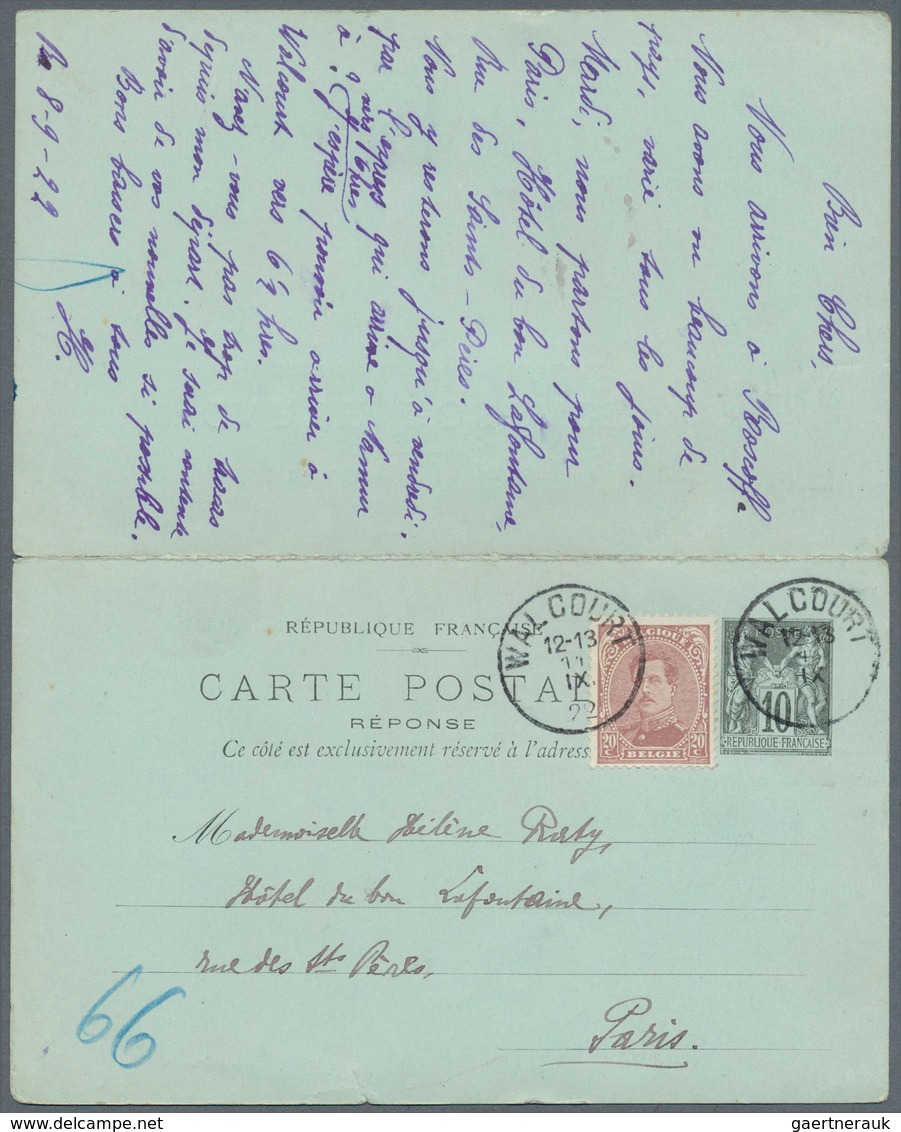 Bien Chers,
Nous arrivons à Roscoff
Nous avons vu beaucoup de
pays, varié tous les jours.
Mardi, nous partons pour
Paris, Hôtel du bon Lafontaine,
Rue des Saints-Pères.
Nous y resterons jusqu'à vendredi.
par l'express qui arrive à Namur
vers 4 hres
à ? J'espère pouvoir arriver à
Walcourt vers 6½ hres.
N'avez-vous pas trop de tracas
depuis mon départ. Je serai contente
d'avoir de vos nouvelles si possible.
Bons baisers à tous
H.
R. 8-9-22
RÉPUBLIQUE FRANÇAISE
CARTE POSTAL
RÉPONSE
Ce côté est exclusivement réservé à l'adress
WALCOURT
12-13
11
IX
22
BELGIQUE
20c 20c
BELGIE
WALCOURT
12-13
IX
POSTES
10
REPUBLIQUE FRANÇAISE
Mademoiselle Hélène Raty,
Hôtel du bon Lafontaine,
rue des Sts Pères,
Paris.
66
gaertnerauk